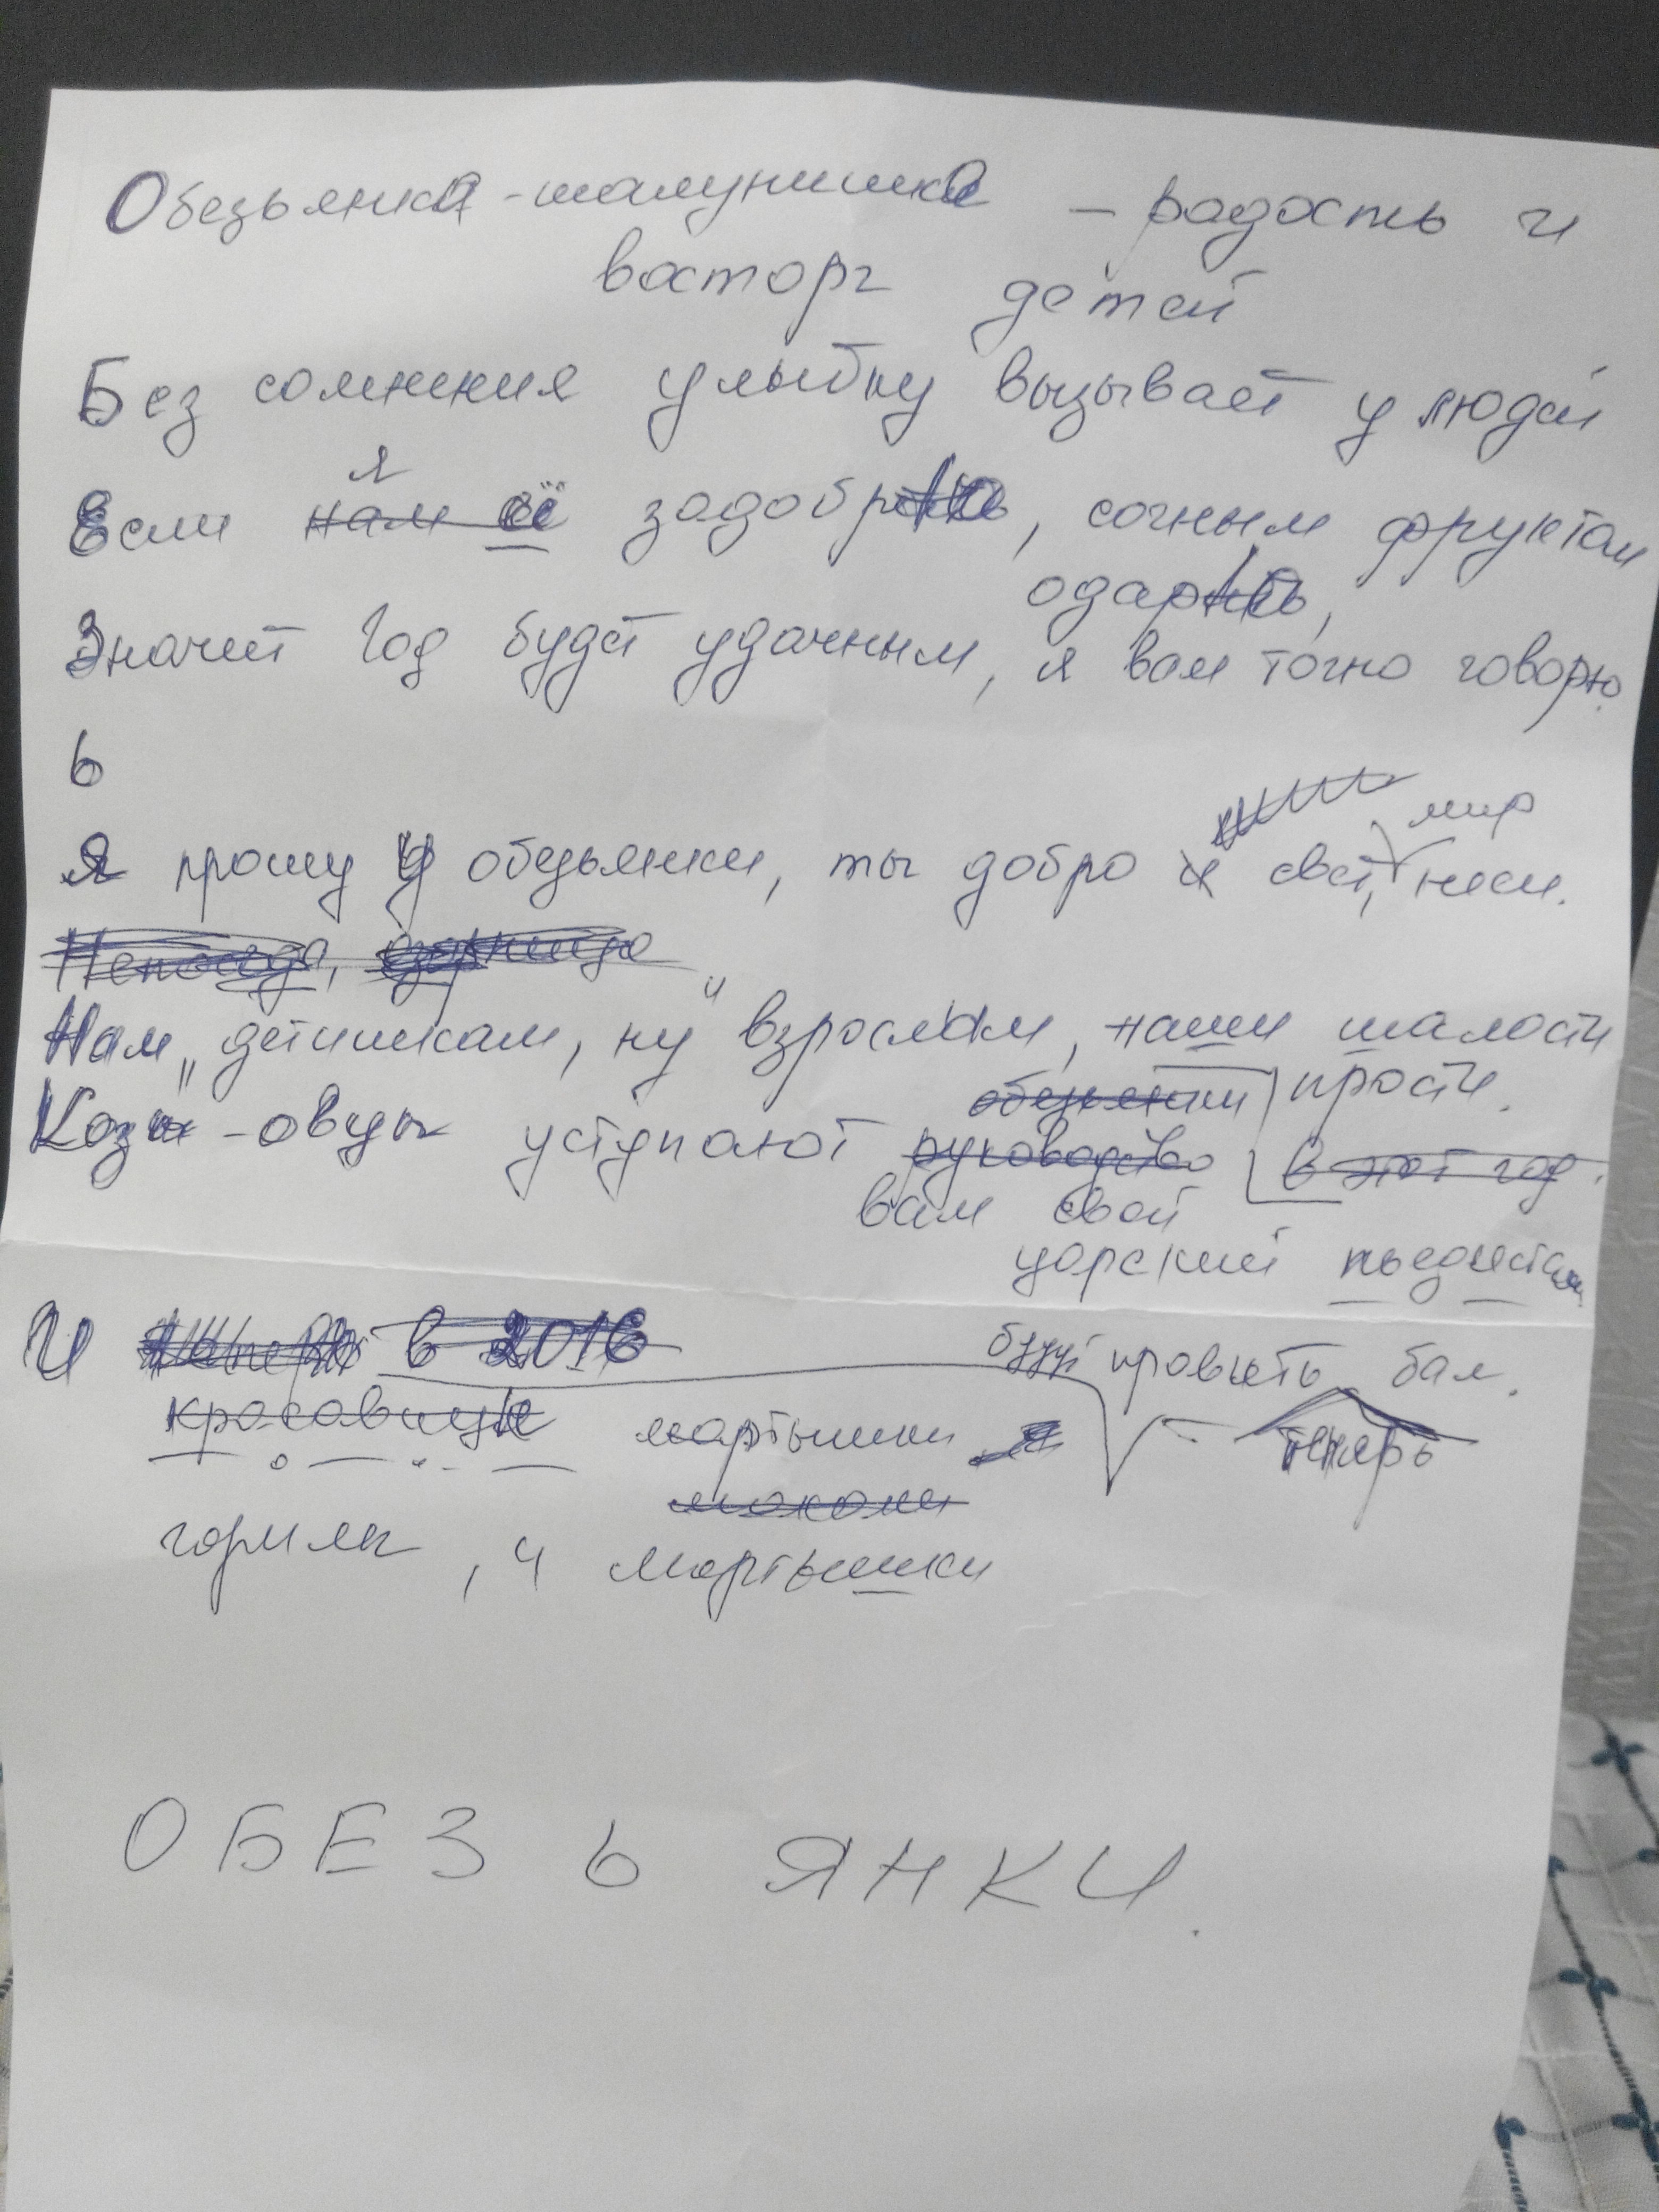 Обезьянка-шалунишка – радость и
восторг детей
Без сомнения улыбку вызывает у людей
я
Если нам её задобрю, сочным фруктом
одарю,
Значит год будет удачным, я вам точно говорю.
Ь
мир
Я прошу у обезьянки, ты добро и свет, неси.
Непоседа,
Нам, детишкам, ну и взрослым, наши шалости
обезьянки прости.
Козы-овцы уступают руководство в этот год.
вам свой
царский пьедестал
И теперь в 2016
будут править бал.
красавицы мартышки
теперь
макаки
горилы, и мартышки
ОБЕЗ Ь ЯНКИ.